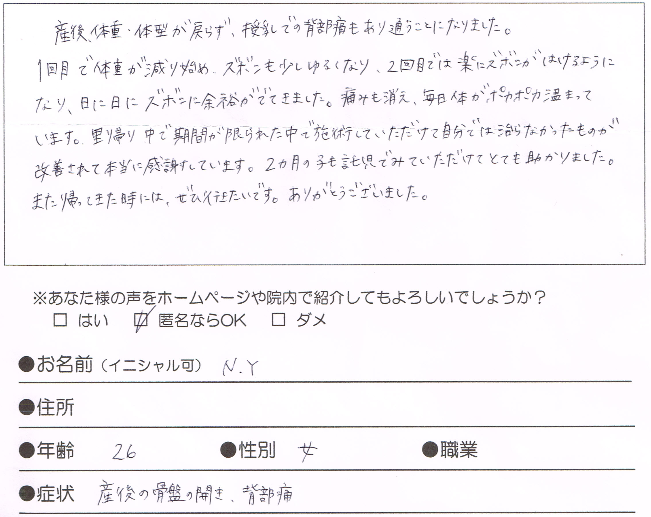 産後、体重・体型が戻らず、授乳での背部痛もあり通うことになりました。
1回目で体重が減り始め、ズボンも少しゆるくなり、2回目では楽にズボンがはけるように
なり、日に日にズボンに余裕がでてきました。痛みも消え、毎日体がポカポカ温まって
います。里帰り中で期間が限られた中で施術していただけて自分では治らなかったものが
改善されて本当に感謝しています。2カ月の子も託児でみていただけてとても助かりました。
また帰ってきた時には、ぜひ行きたいです。ありがとうございました。
※あなた様の声をホームページや院内で紹介してもよろしいでしょうか？
□ はい ☑ 匿名ならOK □ ダメ
●お名前（イニシャル可） N.Y
●住所
●年齢 26 ●性別 女 ●職業
●症状 産後の骨盤の開き、背部痛